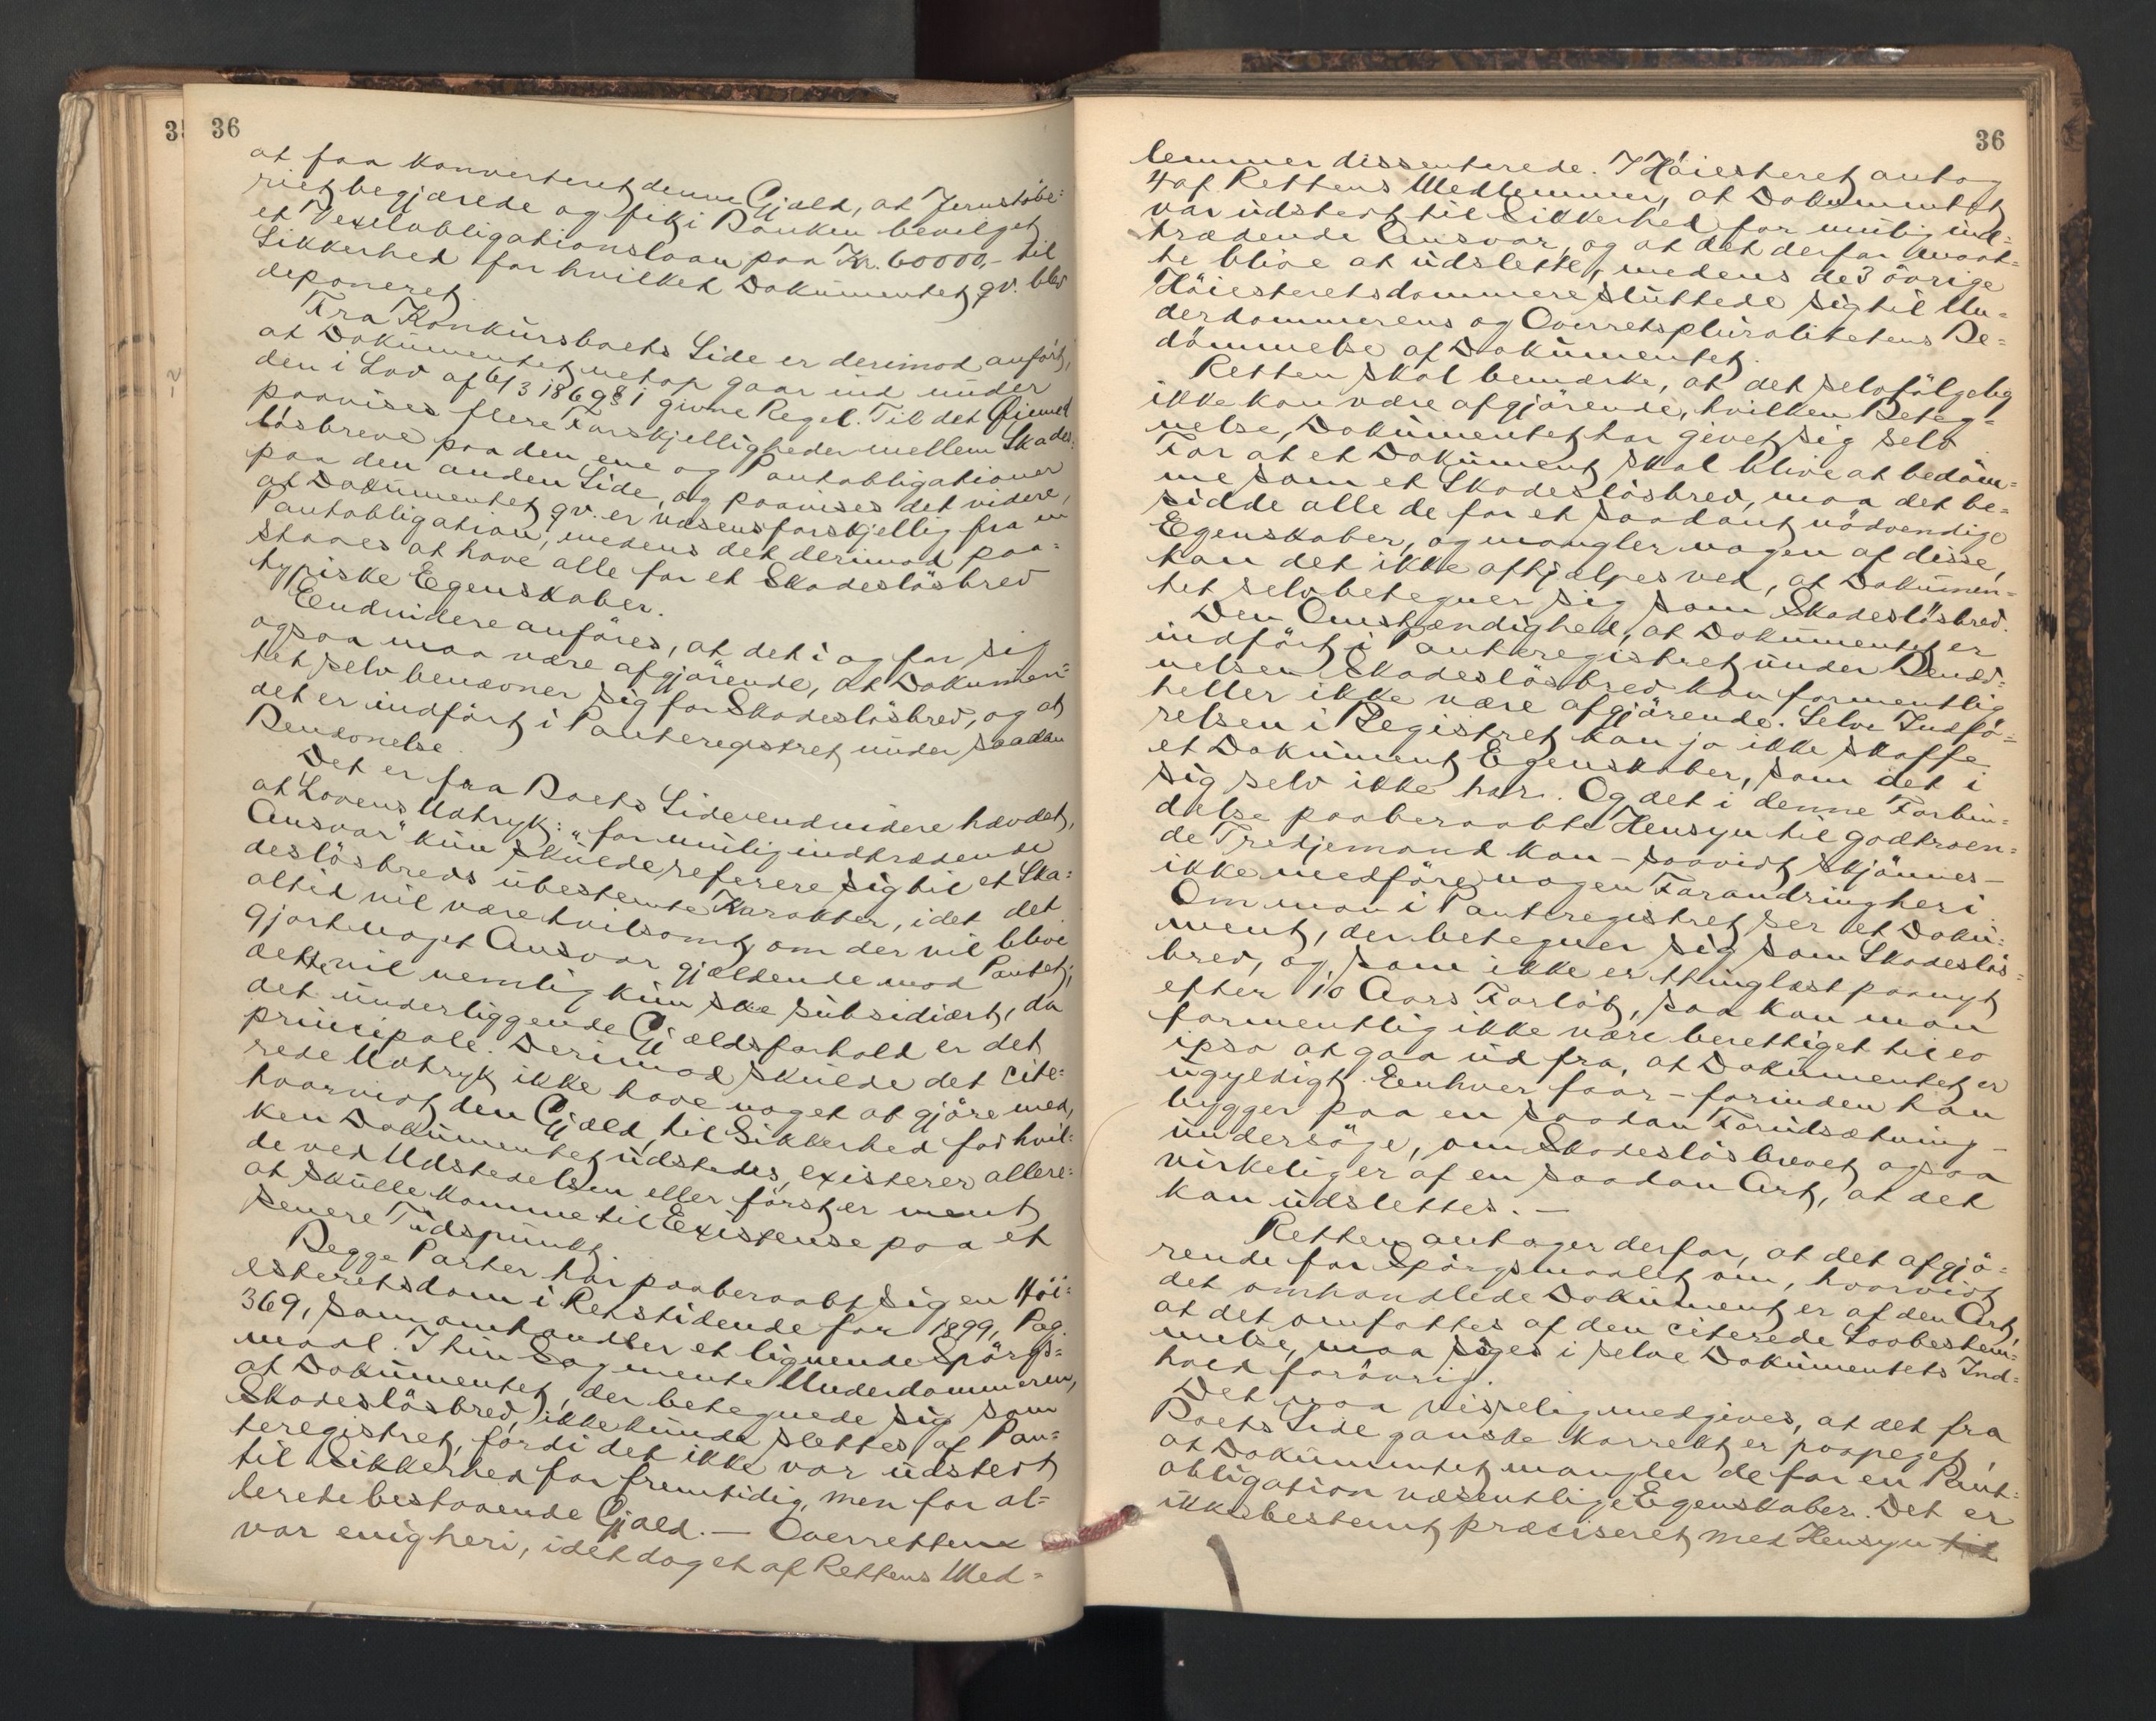 3
36
at faa konverteret denne Gjæld, at Jernstöbe=
riet begjærede og fik i Banken bevilget
et Vexelobligationslaan paa Kr. 60000,- til
Sikkerhed for hvilket Dokumentet qv. blev
deponeret.
Fra Konkursboets Side er derimod anført,
at Dokumentet netop gaar ind under
den i Lov af 6/3 1869 § 1 givne Regel. Til det Øiemed
paavises flere Forskjelligheder mellem Skades=
lösbreve paa den ene og Pantobligationer
paa den anden Side, og paavises det videre,
at Dokumentet qv. er væsensforskjellig fra en
Pantobligation, medens det derimod paa=
staaes at have alle for et Skadeslösbrev
typiske Egenskaber.
Endvidere anföres, at det i og for sig
ogsaa maa være afgjörende, at Dokumen=
tet selv benævner sig for Skadeslösbrev, og at
det er indfört i Panteregistret under saadan
Benævnelse.
Det er fra Boets Side endvidere hævdet,
at Lovens Udtryk: "for mulig indtrædende
Ansvar" kun skulde referere sig til et Ska=
deslösbrevs ubestemte Karakter, idet det
altid vil være tvilsomt, om der vil blive
gjort noget Ansvar gjældende mod Pantet;
dette vil nemlig kun ske subsidiært, da
det underliggende Gjældsforhold er det
principale. Derimod skulde det cite=
rede Udtryk ikke have noget at gjöre med,
hvorvidt den Gjæld, til Sikkerhed for hvil=
ken Dokumentet udstedes, existerer allere=
de ved Udstedelsen eller först er ment
at skulle komme til Existense paa et
senere Tidspunkt.
Begge Parter har paaberaabt sig en Höi=
esteretsdom i Retstidende for 1899, Pag.
369, som omhandler et lignende Spörgs=
maal. I hin Sag mente Underdommeren,
at Dokumentet, der betegnede sig som
Skadeslösbrev, ikke kunde slettes af Pan=
teregistret, fordi det ikke var udstedt
til Sikkerhed for fremtidig, men for al=
lerede bestaaende Gjæld. — Overretten
var enig heri, idet dog et af Rettens Med=
36
lemmer dissenterede. I Höiesteret antog
4 af Rettens Medlemmer, at Dokumentet
var udstedt til Sikkerhed for mulig ind=
trædende Ansvar, og at det derfor maat=
te blive at udslette, medens de 3 övrige
Höiesteretsdommere sluttede sig til Un=
derdommerens og Overretspluralitetens Be=
dömmelse af Dokumentet.
Retten skal bemærke, at det selvfölgelig
ikke kan være afgjörende, hvilken Beteg=
nelse, Dokumentet har givet sig selv.
For at et Dokument skal blive at bedöm=
me som et Skadeslösbrev, maa det be=
sidde alle de for et saadant nödvendige
Egenskaber, og mangler nogen af disse,
kan det ikke afhjælpes ved, at Dokumen=
tet selv betegner sig som Skadeslösbrev.
Den Omstændighed, at Dokumentet er
indfört i Panteregistret under Benæv=
nelsen Skadeslösbrev kan formentlig
heller ikke være afgjörende. Selve Indfö=
relsen i Registret kan jo ikke skaffe
et Dokument Egenskaber, som det i
sig selv ikke har. Og det i denne Forbin=
delse paaberaabte Hensyn til godtroen=
de Tredjemand kan – saavidt skjönnes –
ikke medföre nogen Forandring heri.
Om man i Panteregistret ser et Doku=
ment, der betegner sig som Skadeslös=
brev, og som ikke er thinglæst paanyt
efter 10 Aars Forlöb, saa kan man
formentlig ikke være berettiget til eo
ipso at gaa ud fra, at Dokumentet er
ugyldigt. Enhver faar – forinden han
bygger paa en saadan Forudsætning –
undersöge, om Skadeslösbrevet ogsaa
virkelig er af en saadan Art, at det
kan udslettes. —
Retten antager derfor, at det afgjö=
rende for Spörgsmaalet om, hvorvidt
det omhandlede Dokument er af den Art,
at det omfattes af den citerede Lovbestem=
melse, maa söges i selve Dokumentets Ind=
hold forövrig.
Det maa visselig medgives, at det fra
Boets Side ganske korrekt er paapeget,
at Dokumentet mangler de for en Pant=
obligation væsentlige Egenskaber. Det er
ikke bestemt præciseret med Hensyn til